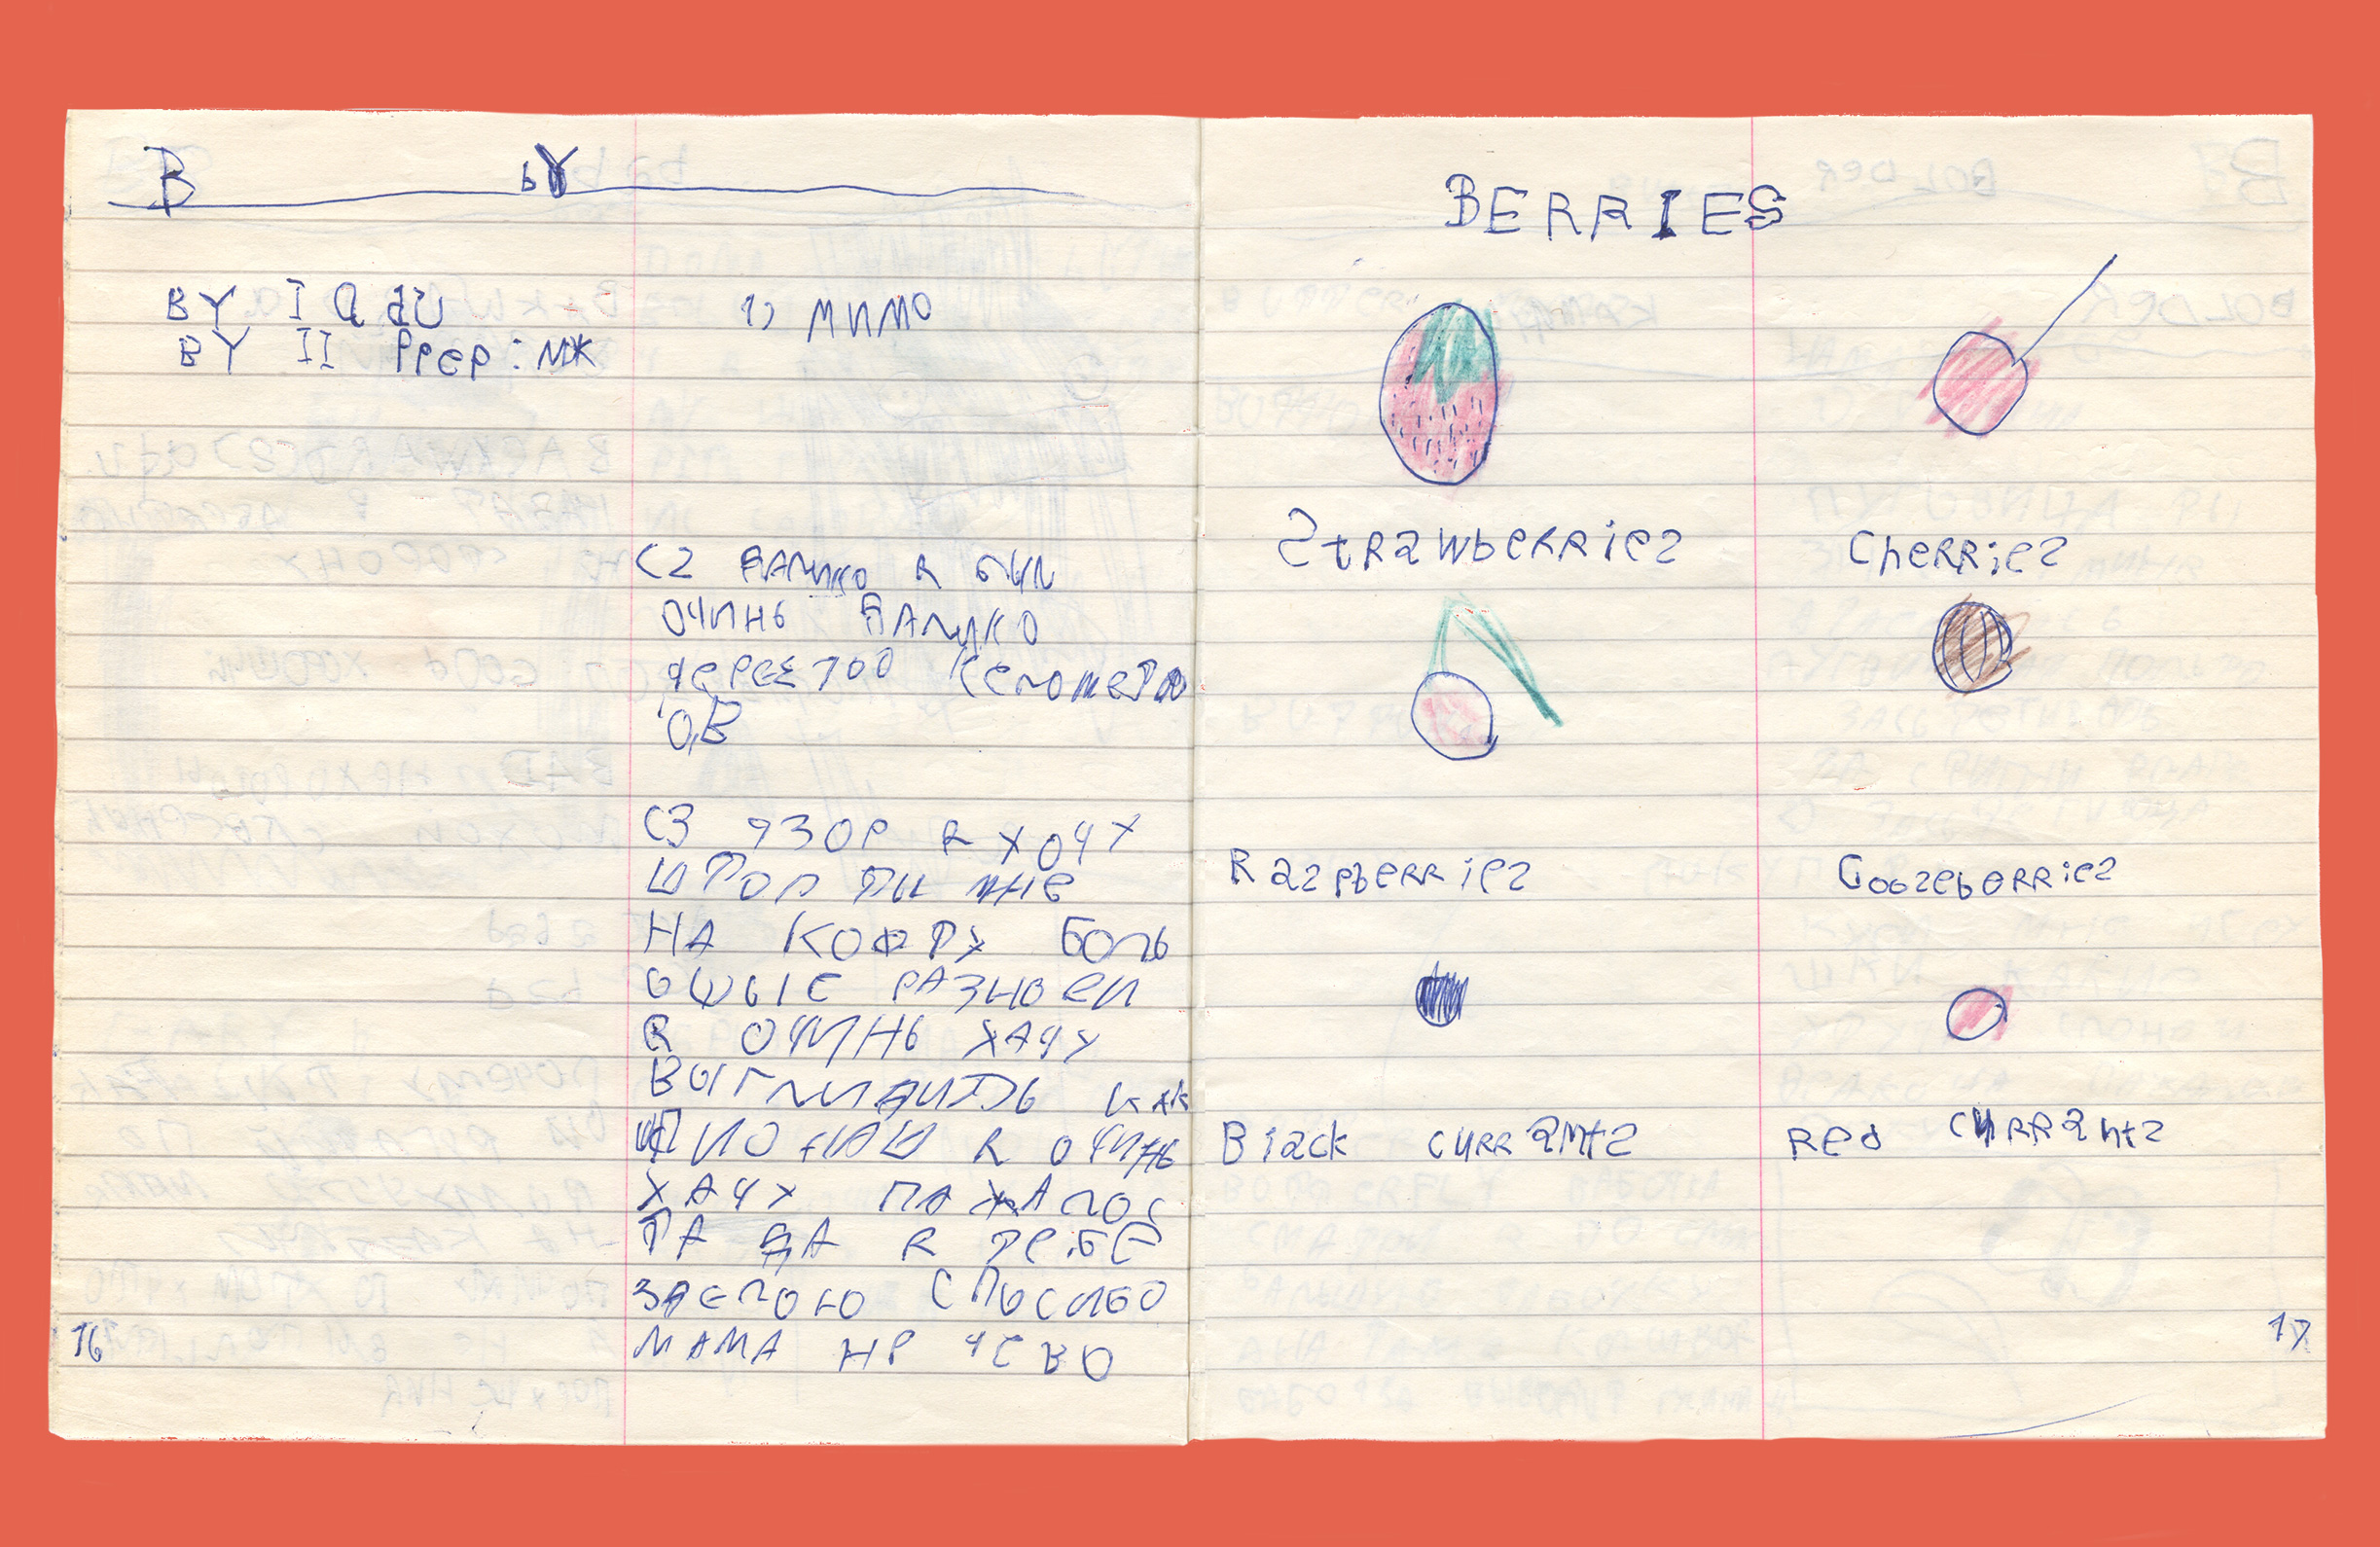 B bY
BY I a dU
BY II Prep: МЖ
1) МИМО
С2 ДАЛИКО Я БЫЛ
ОЧИНЬ ДАЛИКО
ЧЕРЕЗ 100 КеЛОМеТР
ОВ
С3 УЗОР Я ХОЧУ
ШТОП ТЫ МНЕ
НА КОФТУ БОЛЬ
ШЫЕ РАЗНОЕИ
Я ОЧИНЬ ХАЧУ
ВЫГЛИДИТЬ КАК
Я ОЧИНЬ
ХАЧУ ПАЖАЛОС
ТА ДА Я ТЕБЕ
СПЫСИБО
МАМА НЕ ЧЕВО
16
BERRIES
Strawberries Cherries
Raspberries Gooseberries
Black currants Red currants
17